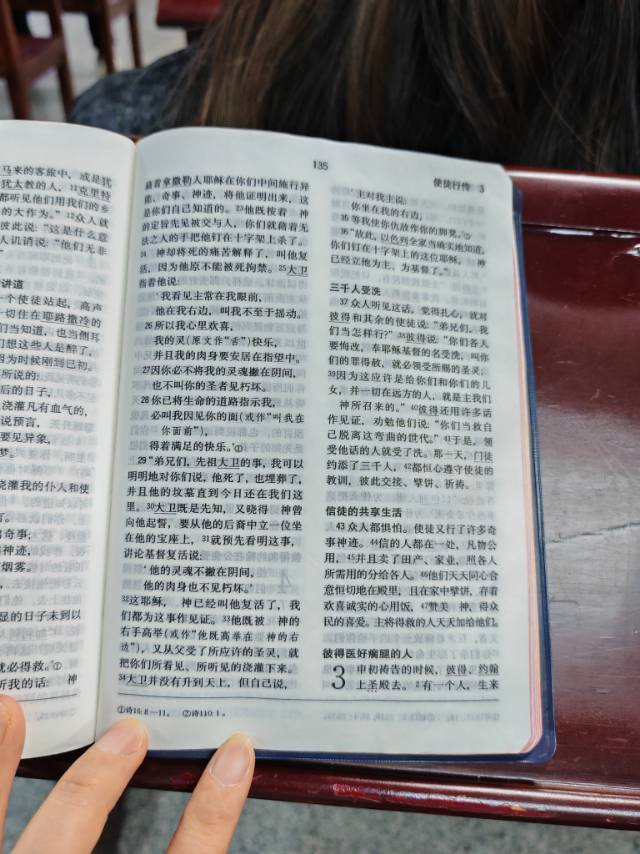 马来的客旅中，或是犹
犹太教的人，¹¹克里特
都听见他们用我们的乡
的大作为。”¹²众人就
彼此说：“这是什么意
人讥诮说：“他们无非
讲道
一个使徒站起，高声
一切住在耶路撒冷的
们当知道，也当侧耳
们想这些人是醉了，
因为时候刚到已初。
所说的：
后的日子，
浇灌凡有血气的，
说预言，
要见异象，
梦。
浇灌我的仆人和使
言。
出奇事；
神迹，
烟雾。
显的日子未到以
就必得救。’①
听我的话： 神
135
使徒行传 3
藉着拿撒勒人耶稣在你们中间施行异
能、奇事、神迹，将他证明出来，这
是你们自己知道的。²³他既按着 神
的定旨先见被交与人，你们就藉着无
法之人的手把他钉在十字架上杀了。
24 神却将死的痛苦解释了，叫他复
活，因为他原不能被死拘禁。²⁵大卫
指着他说：
‘我看见主常在我眼前，
他在我右边，叫我不至于摇动。
26所以我心里欢喜，
我的灵（原文作“舌”）快乐，
并且我的肉身要安居在指望中。
27因你必不将我的灵魂撇在阴间，
也不叫你的圣者见朽坏。
28你已将生命的道路指示我，
必叫我因见你的面（或作“叫我在
你面前”），
得着满足的快乐。’①
29“弟兄们，先祖大卫的事，我可以
明明地对你们说，他死了，也埋葬了，
并且他的坟墓直到今日还在我们这
里。³⁰大卫既是先知，又晓得 神曾
向他起誓，要从他的后裔中立一位坐
在他的宝座上，³¹就预先看明这事，
讲论基督复活说：
‘他的灵魂不撇在阴间，
他的肉身也不见朽坏。’
³²这耶稣， 神已经叫他复活了，我
们都为这事作见证。³³他既被 神的
右手高举（或作“他既高举在 神的右
边”），又从父受了所应许的圣灵，就
把你们所看见、所听见的浇灌下来。
³⁴大卫并没有升到天上，但自己说，
①诗16：8—11。 ②诗110：1。
‘主对我主说：
你坐在我的右边，
35 等我使你仇敌作你的脚凳。’②
36“故此，以色列全家当确实地知道，
你们钉在十字架上的这位耶稣， 神
已经立他为主，为基督了。”
三千人受洗
37 众人听见这话，觉得扎心，就对
彼得和其余的使徒说：“弟兄们，我
们当怎样行？”³⁸彼得说：“你们各人
要悔改，奉耶稣基督的名受洗，叫你
们的罪得赦，就必领受所赐的圣灵；
³⁹因为这应许是给你们和你们的儿
女，并一切在远方的人，就是主我们
神所召来的。”⁴⁰彼得还用许多话
作见证，劝勉他们说：“你们当救自
己脱离这弯曲的世代。”⁴¹于是，领
受他话的人就受了洗。那一天，门徒
约添了三千人，⁴²都恒心遵守使徒的
教训，彼此交接、擘饼、祈祷。
信徒的共享生活
43 众人都惧怕。使徒又行了许多奇
事神迹。⁴⁴信的人都在一处，凡物公
用，⁴⁵并且卖了田产、家业，照各人
所需用的分给各人。⁴⁶他们天天同心合
意恒切地在殿里，且在家中擘饼，存着
欢喜诚实的心用饭，⁴⁷赞美 神，得众
民的喜爱。主将得救的人天天加给他们。
彼得医好瘸腿的人
3 申初祷告的时候，彼得、约翰
上圣殿去。²有一个人，生来